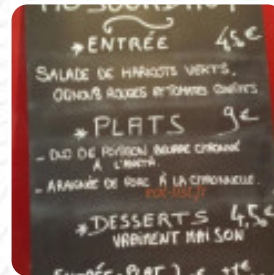 ENTRÉE 4,5€
SALADE DE HARICOTS VERTS,
OIGNONS ROUGES ET TOMATES CONFITES
* PLATS 9€
- DUO DE POISSON BEURRE CITRONNÉ
À L'ANETH
- ARAIGNÉE DE PORC À LA CITRONNELLE.
* DESSERTS 4,5€
VRAIMENT MAISON
ENTRÉE - PLAT